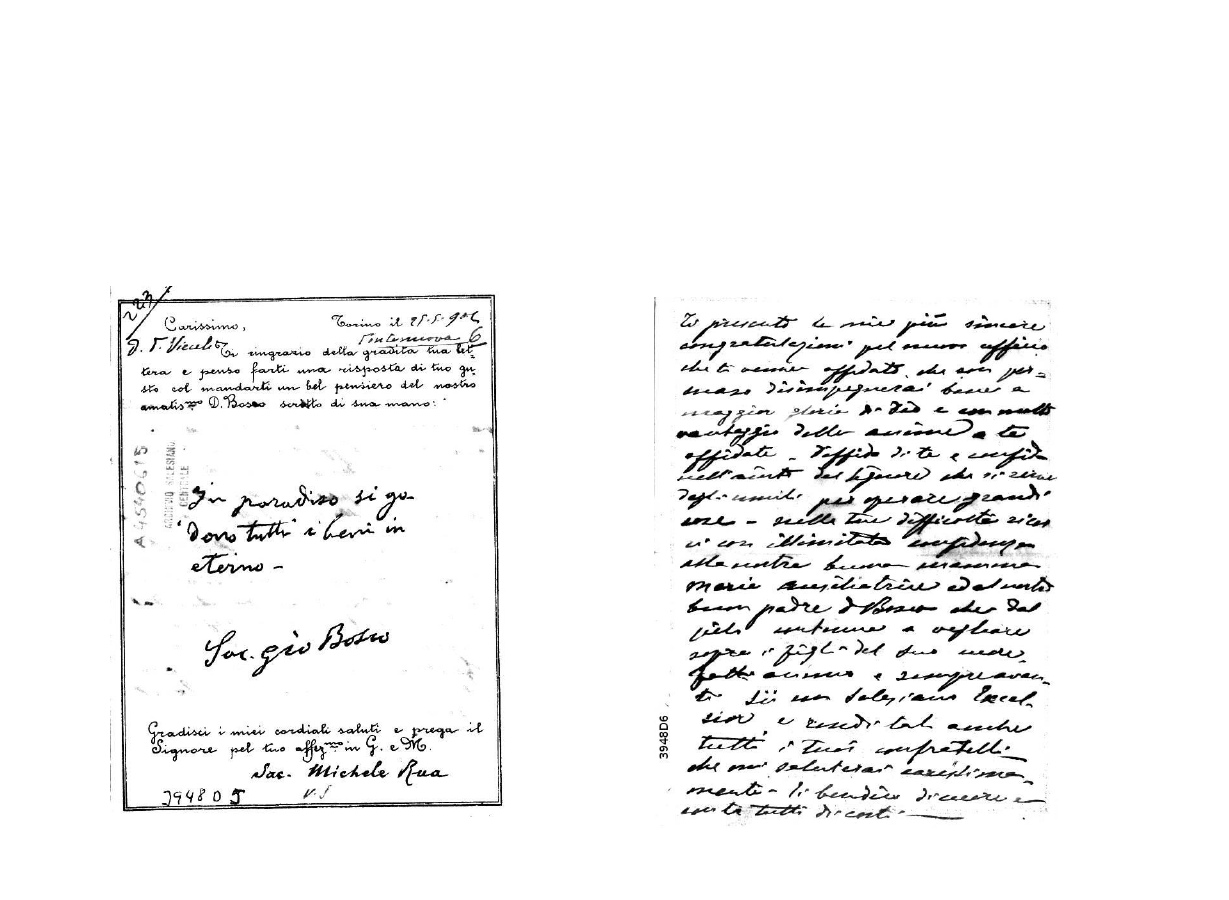 223
Carissimo, Torino il 25.5.906
Ti ringrazio della gradita tua let=
tera e penso farti una risposta di tuo gu=
sto col mandarti un bel pensiero del nostro
amatis.mo D. Bosco scritto di sua mano:
In paradiso si go-
dono tutti i beni in
eterno -
Sac. Gio Bosco
Gradisci i miei cordiali saluti e prega il
Signore pel tuo affez.mo in G. e M.
Sac. Michele Rua
3948 D 5
A4540615
ARCHIVIO SALESIANO
CENTRALE
Ti presento le mie più sincere
congratulazioni pel nuovo ufficio
che ti venne affidato, che son per=
suaso disimpegnerai bene a
maggior gloria di Dio e con molto
vantaggio delle anime a te
affidate - Diffida di te e confida
nell'aiuto del Signore che si serve
degli umili per operare grandi
cose - nelle tue difficoltà ricor
ri con illimitata confidenza
alla nostra buona mamma
Maria Ausiliatrice ed al nostro
buon padre D Bosco che dal
cielo continua a vegliare
sopra i figli del suo cuore.
fatti animo e sempre avan-
ti. Sii un Salesiano Excel-
sior e rendi tali anche
tutti i tuoi confratelli
che mi saluterai carissima-
mente - Ti benedico di cuore
con te tutti di costì -
3948D6